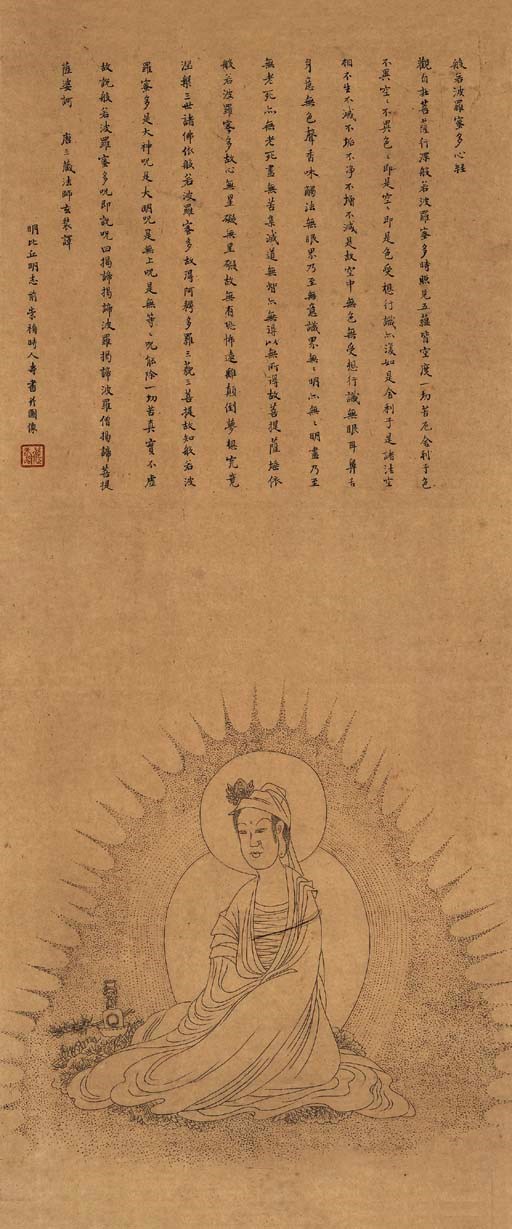 般若波羅蜜多心経
觀自在菩薩行深般若波羅蜜多時照見五蘊皆空度一切苦厄舍利子色
不異空〻不異色〻即是空〻即是色受想行識亦復如是舍利子是諸法空
相不生不滅不垢不淨不增不減是故空中無色無受想行識無眼耳鼻舌
身意無色聲香味觸法無眼界乃至無意識界無〻明亦無〻明盡乃至
無老死亦無老死盡無苦集滅道無智亦無得以無所得故菩提薩埵依
般若波羅蜜多故心無罣礙無罣礙故無有恐怖遠離顛倒夢想究竟
涅槃三世諸佛依般若波羅蜜多故得阿耨多羅三藐三菩提故知般若波
羅蜜多是大神呪是大明呪是無上呪是無等〻呪能除一切苦真實不虛
故說般若波羅蜜多呪即說呪曰揭諦揭諦波羅揭諦波羅僧揭諦菩提
薩婆訶 唐三藏法師玄奘譯
明比丘明志前崇禎時人壽書并圖像